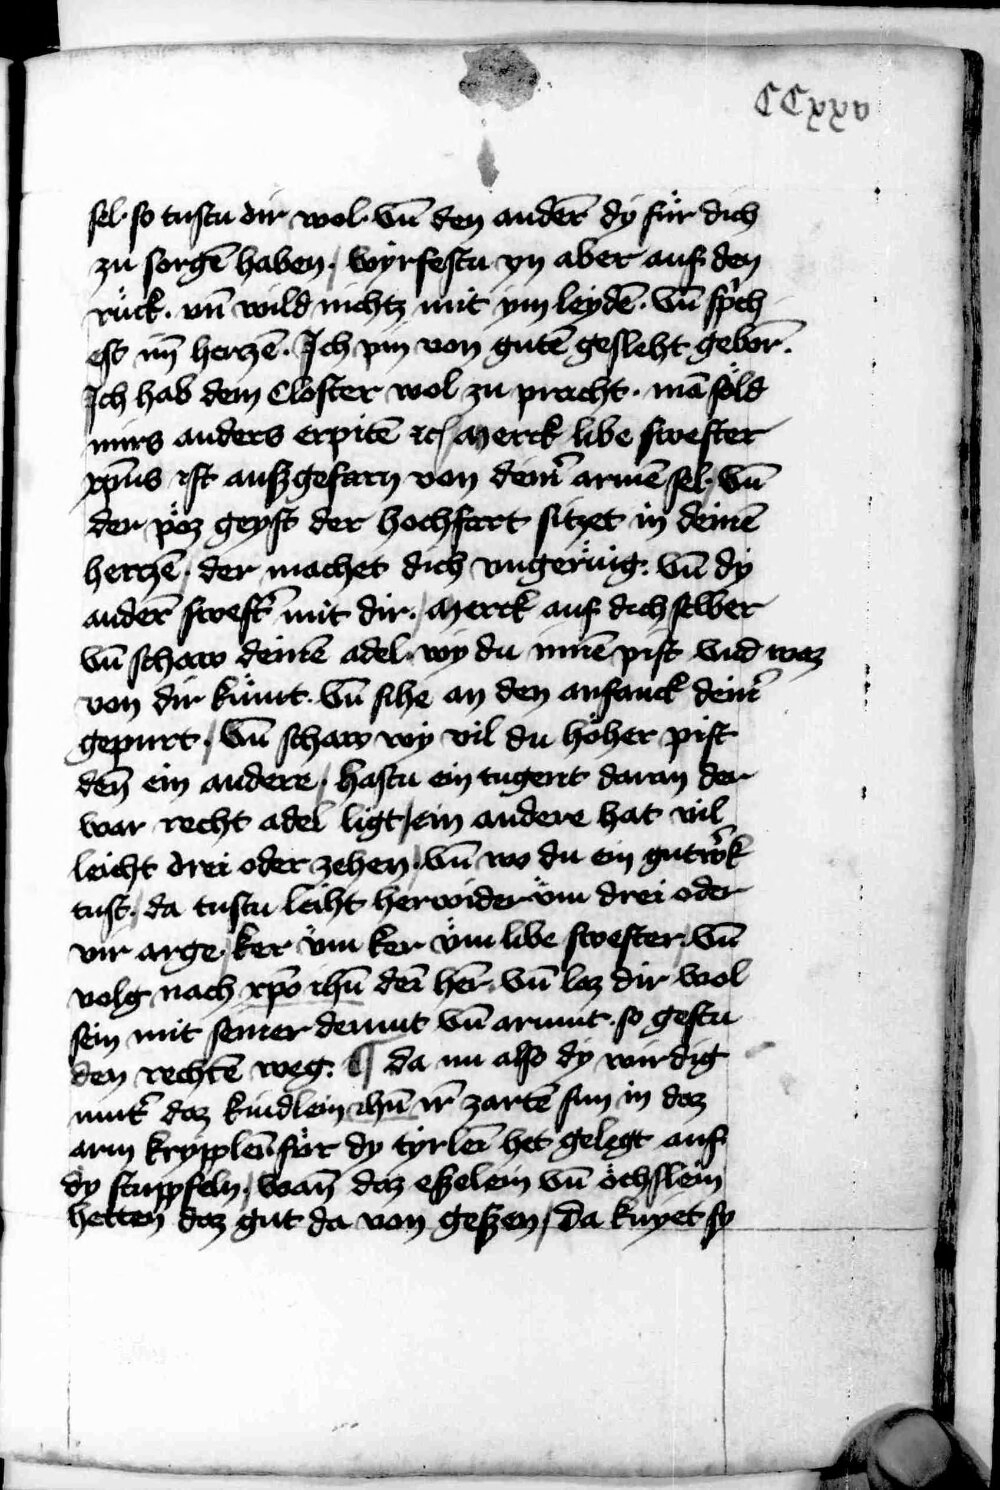 CCxxv
sel· so tustu dir wol· vn̄ den ander̄ dy für dich
zu sorgē haben· / wyrfestu yn aber auf den
rück· vn̄ wild nichtz mit ym leydē· vn̄ spͨch
est im̄ herczē· Ich pin von gutē gesleht gebor̄·
Ich hab dem Closter wol zu procht· mā söld
mirs anders erpitē ꝛc / Merck libe swester
xp̄us ist auszgefarn von deinͬ armē sel· vn̄
der pöz geyst der hochfart sitzet in deinē
herczē· der machet dich vngerüig: vn̄ dy
ander̄ swestͬ mit dir· / Merck auf dich selber
vn̄ schaw deinē adel· wy du innē pist vnd waz
von dir kümt· vn̄ sihe an den anfanck deinͬ
gepurt· / vn̄ schaw wy vil du höher pist
den̄ ein andere / hastu ein tugent daran der
war recht adel ligt / ein andere hat vil
leicht drei oder zehen· vn̄ wo du ein gutͬ wͬck
tust· / da tustu leiht herwider vm drei oder
vir arge / ker vm ker vm libe swester / vn̄
volg nach xp̄o ih̄u dei̅ her̄· vn̄ loz dir wol
sein mit seiner demut vn̄ armut· so gestu
den rechtē weg: ¶ da nu also dy wirdig
mutͬ daz kindlein ih̄u ir̄ zartē sun in daz
arm kripplei̅ für dy tyrlei̅ het gelegt auf
dy stuppfeln· / wan̄ daz eszelein vn̄ öchslein
hetten daz gut da von geszen / Da knyet sy